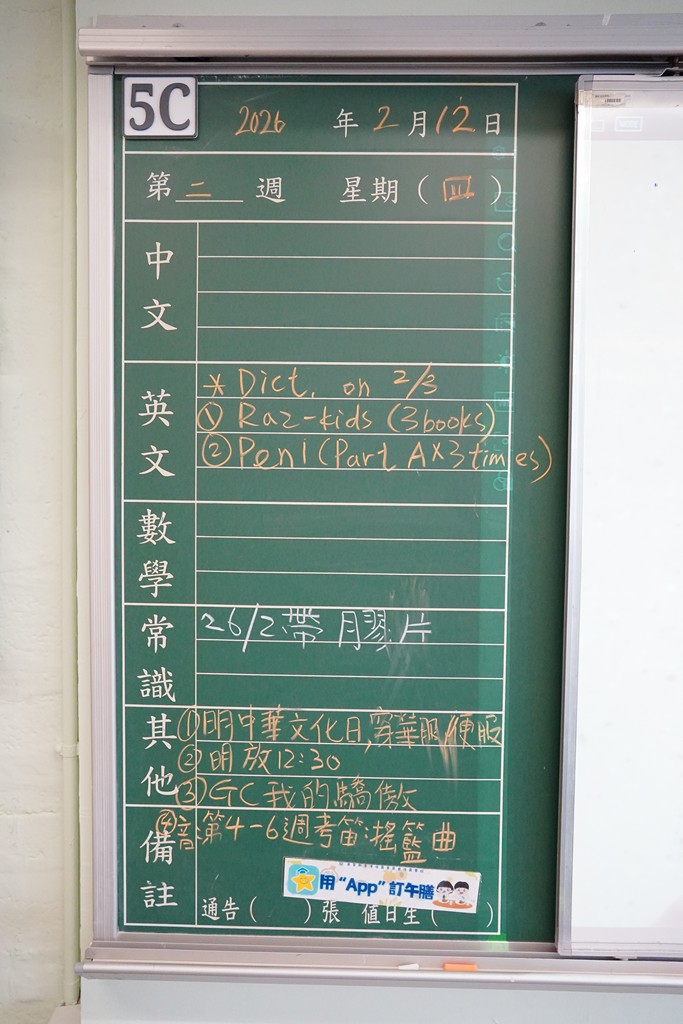 5C
2026 年 2 月 12 日
第 二 週 星期 ( 四 )
中文
英文
* Dict. on 2/3
① Raz-kids (3books)
② Pen1 (Part A×3times)
數學
常識
26/2帶膠片
其他
①明中華文化日,穿華服/便服
②明放12:30
③GC我的驕傲
備註
④音:第4-6週考笛:搖籃曲
用“App”訂午膳
通告 ( ) 張 值日生 ( )